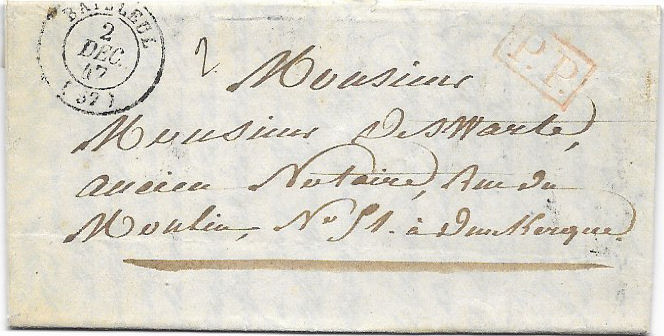 BAILLEUL
2
DEC.
47
(57)
2
P.P.
Monsieur
Monsieur DesWarte,
ancien Notaire, Rue du
Moulin, No 51. à Dunkerque.